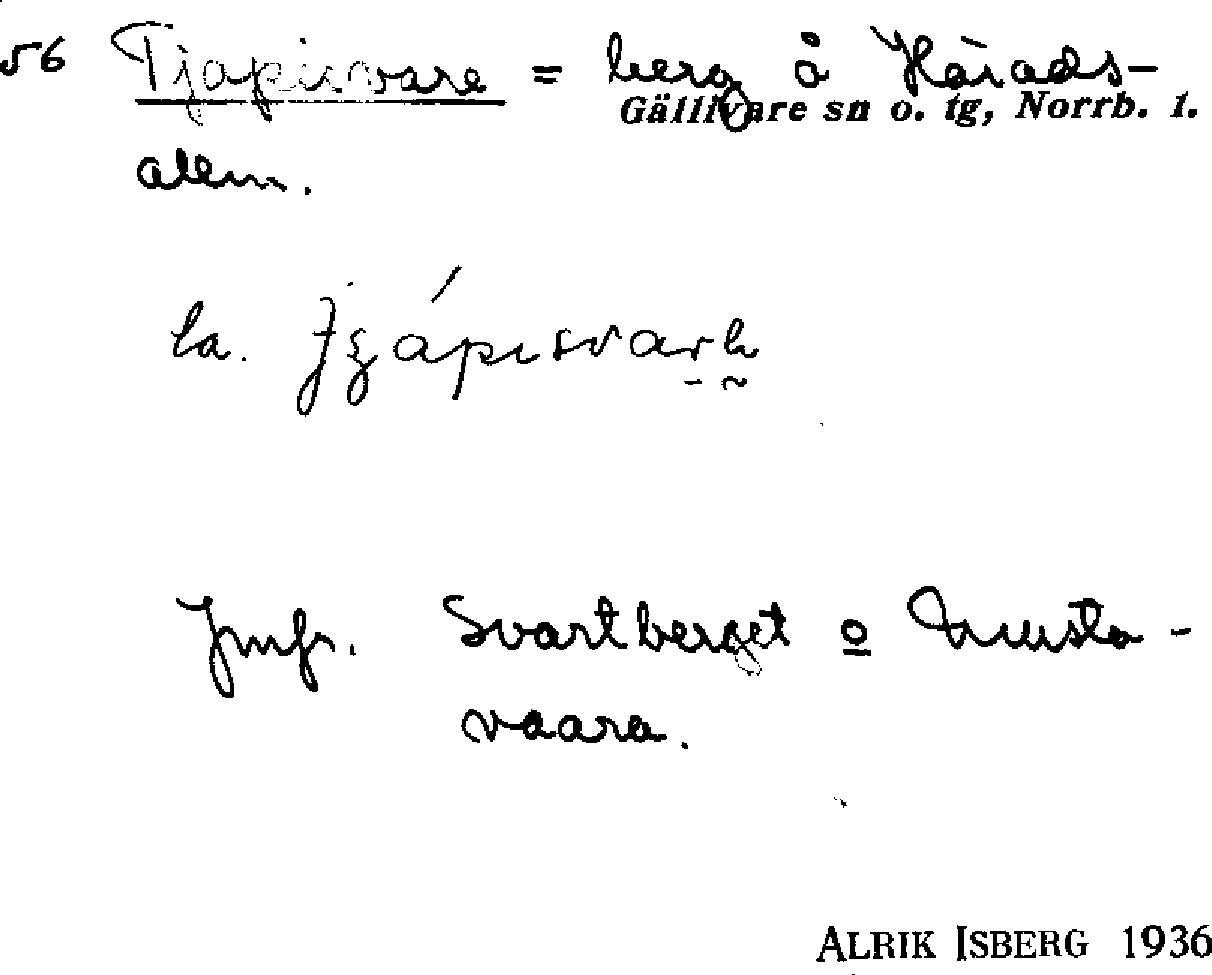 56 Tjapisvare = berg å Härads-
Gällivare sn o. tg, Norrb. l.
allm.
la.
Jmfr. Svartberget o Musta-
vaara.
ALRIK ISBERG 1936